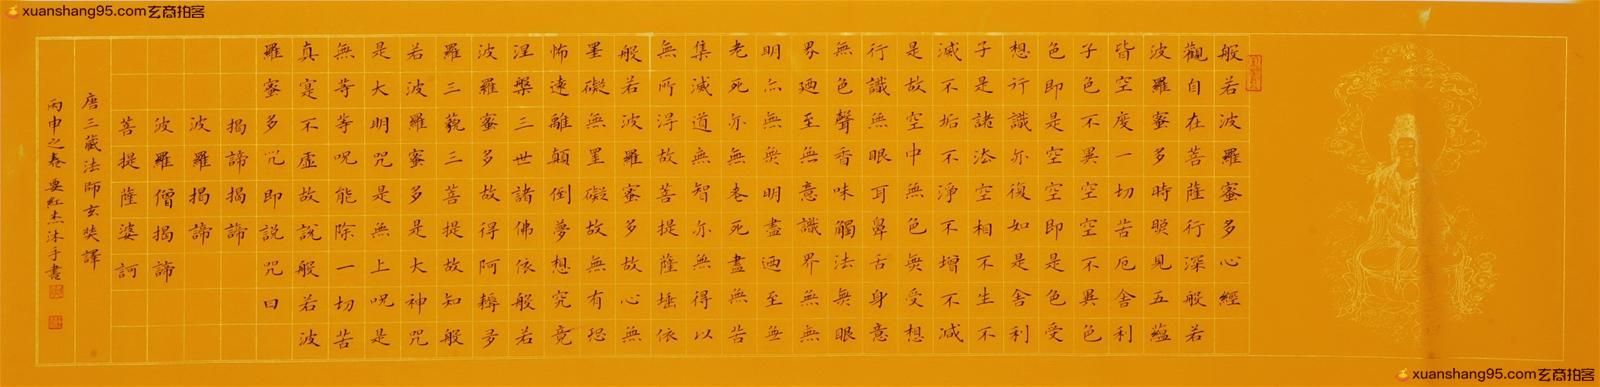 xuanshang95.com玄商拍客
xuanshang95.com玄商拍客
般若波羅蜜多心經
觀自在菩薩行深般若
波羅蜜多時照見五蘊
皆空度一切苦厄舍利
子色不異空空不異色
色即是空空即是色受
想行識亦復如是舍利
子是諸法空相不生不
滅不垢不淨不增不減
是故空中無色無受想
行識無眼耳鼻舌身意
無色聲香味觸法無眼
界廼至無意識界無無
明亦無無明盡廼至無
老死亦無老死盡無苦
集滅道無智亦無得以
無所得故菩提薩埵依
般若波羅蜜多故心無
罣礙無罣礙故無有恐
怖遠離顛倒夢想究竟
涅槃三世諸佛依般若
波羅蜜多故得阿耨多
羅三藐三菩提故知般
若波羅蜜多是大神咒
是大明咒是無上呪是
無等等呪能除一切苦
真寔不虛故說般若波
羅蜜多咒即説咒曰
揭諦揭諦
波羅揭諦
波羅僧揭諦
菩提薩婆訶
唐三藏法師玄奘譯
丙申之春要紅杰沐手書
xuanshang95.com玄商拍客